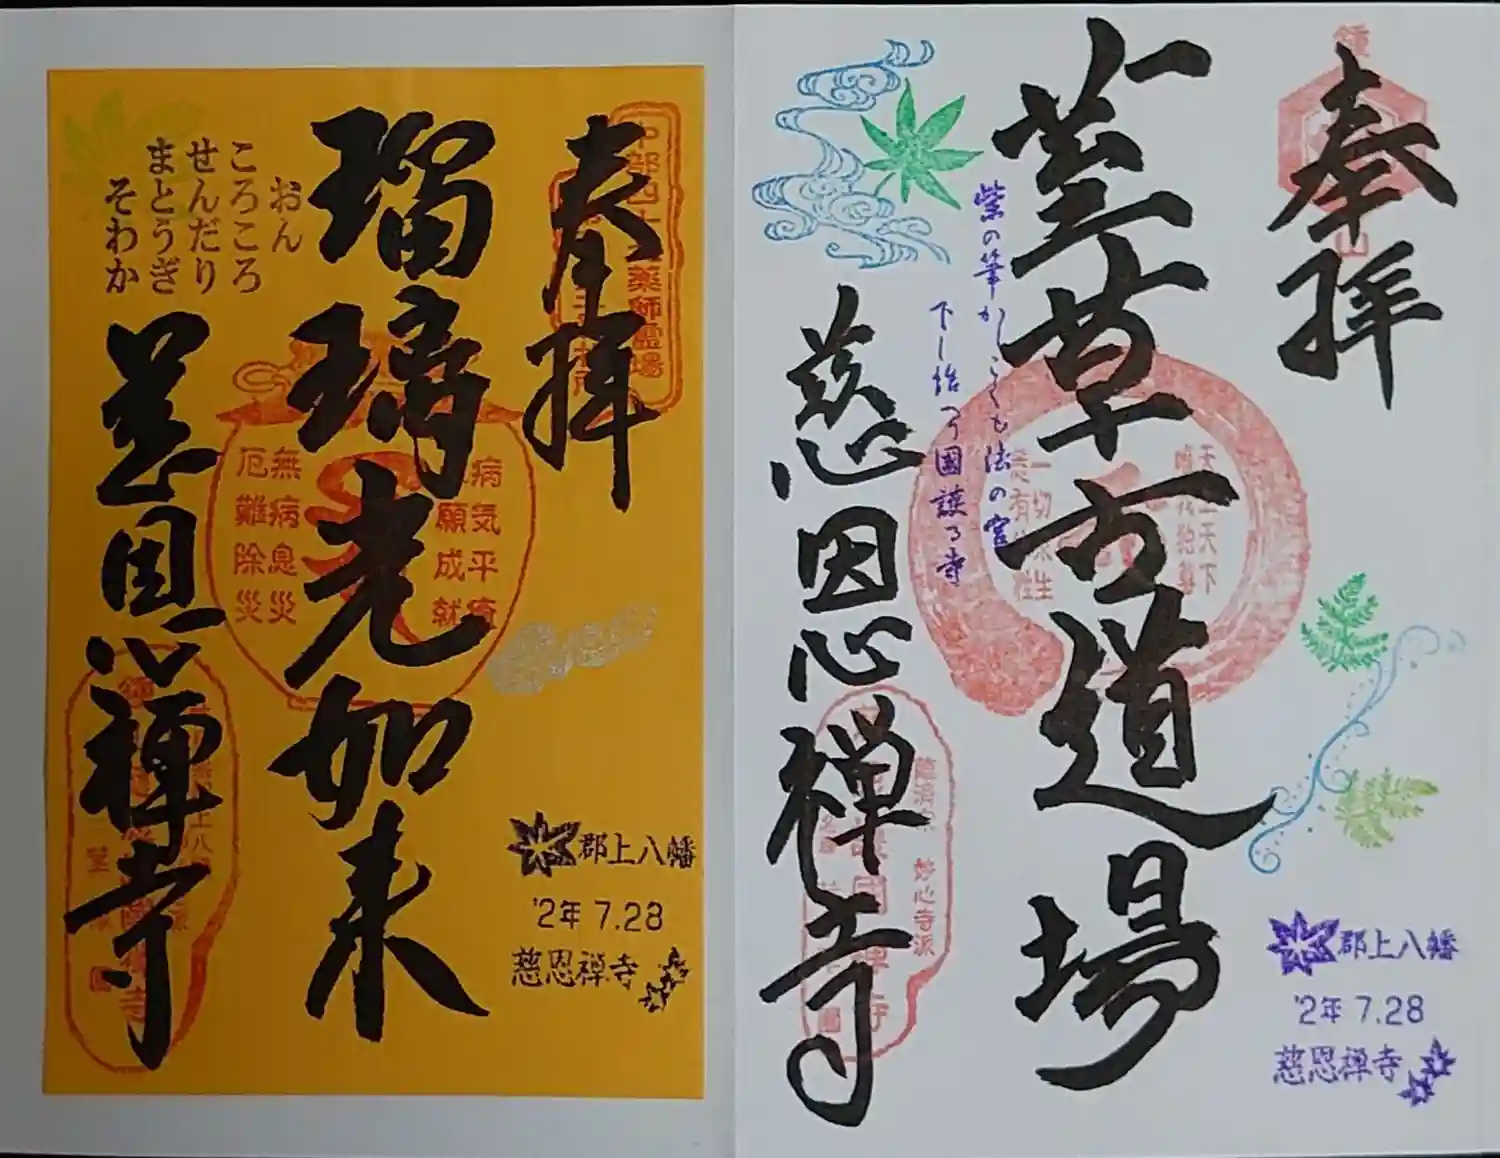 奉拝
荎草古道場
紫の筆かしこくも法の
下し給ふ国護る寺
慈恩禅寺
天上天下
唯我独尊
一切衆生
悉有仏性
妙心寺派
郡上八幡
'2年 7.28
慈恩禅寺
奉拝
薬師霊場
瑠璃光如来
病気平癒
願成就
無病息災
厄難除災
おん
ころころ
せんだり
まとうぎ
そわか
慈恩禅寺
郡上八幡
'2年 7.28
慈恩禅寺